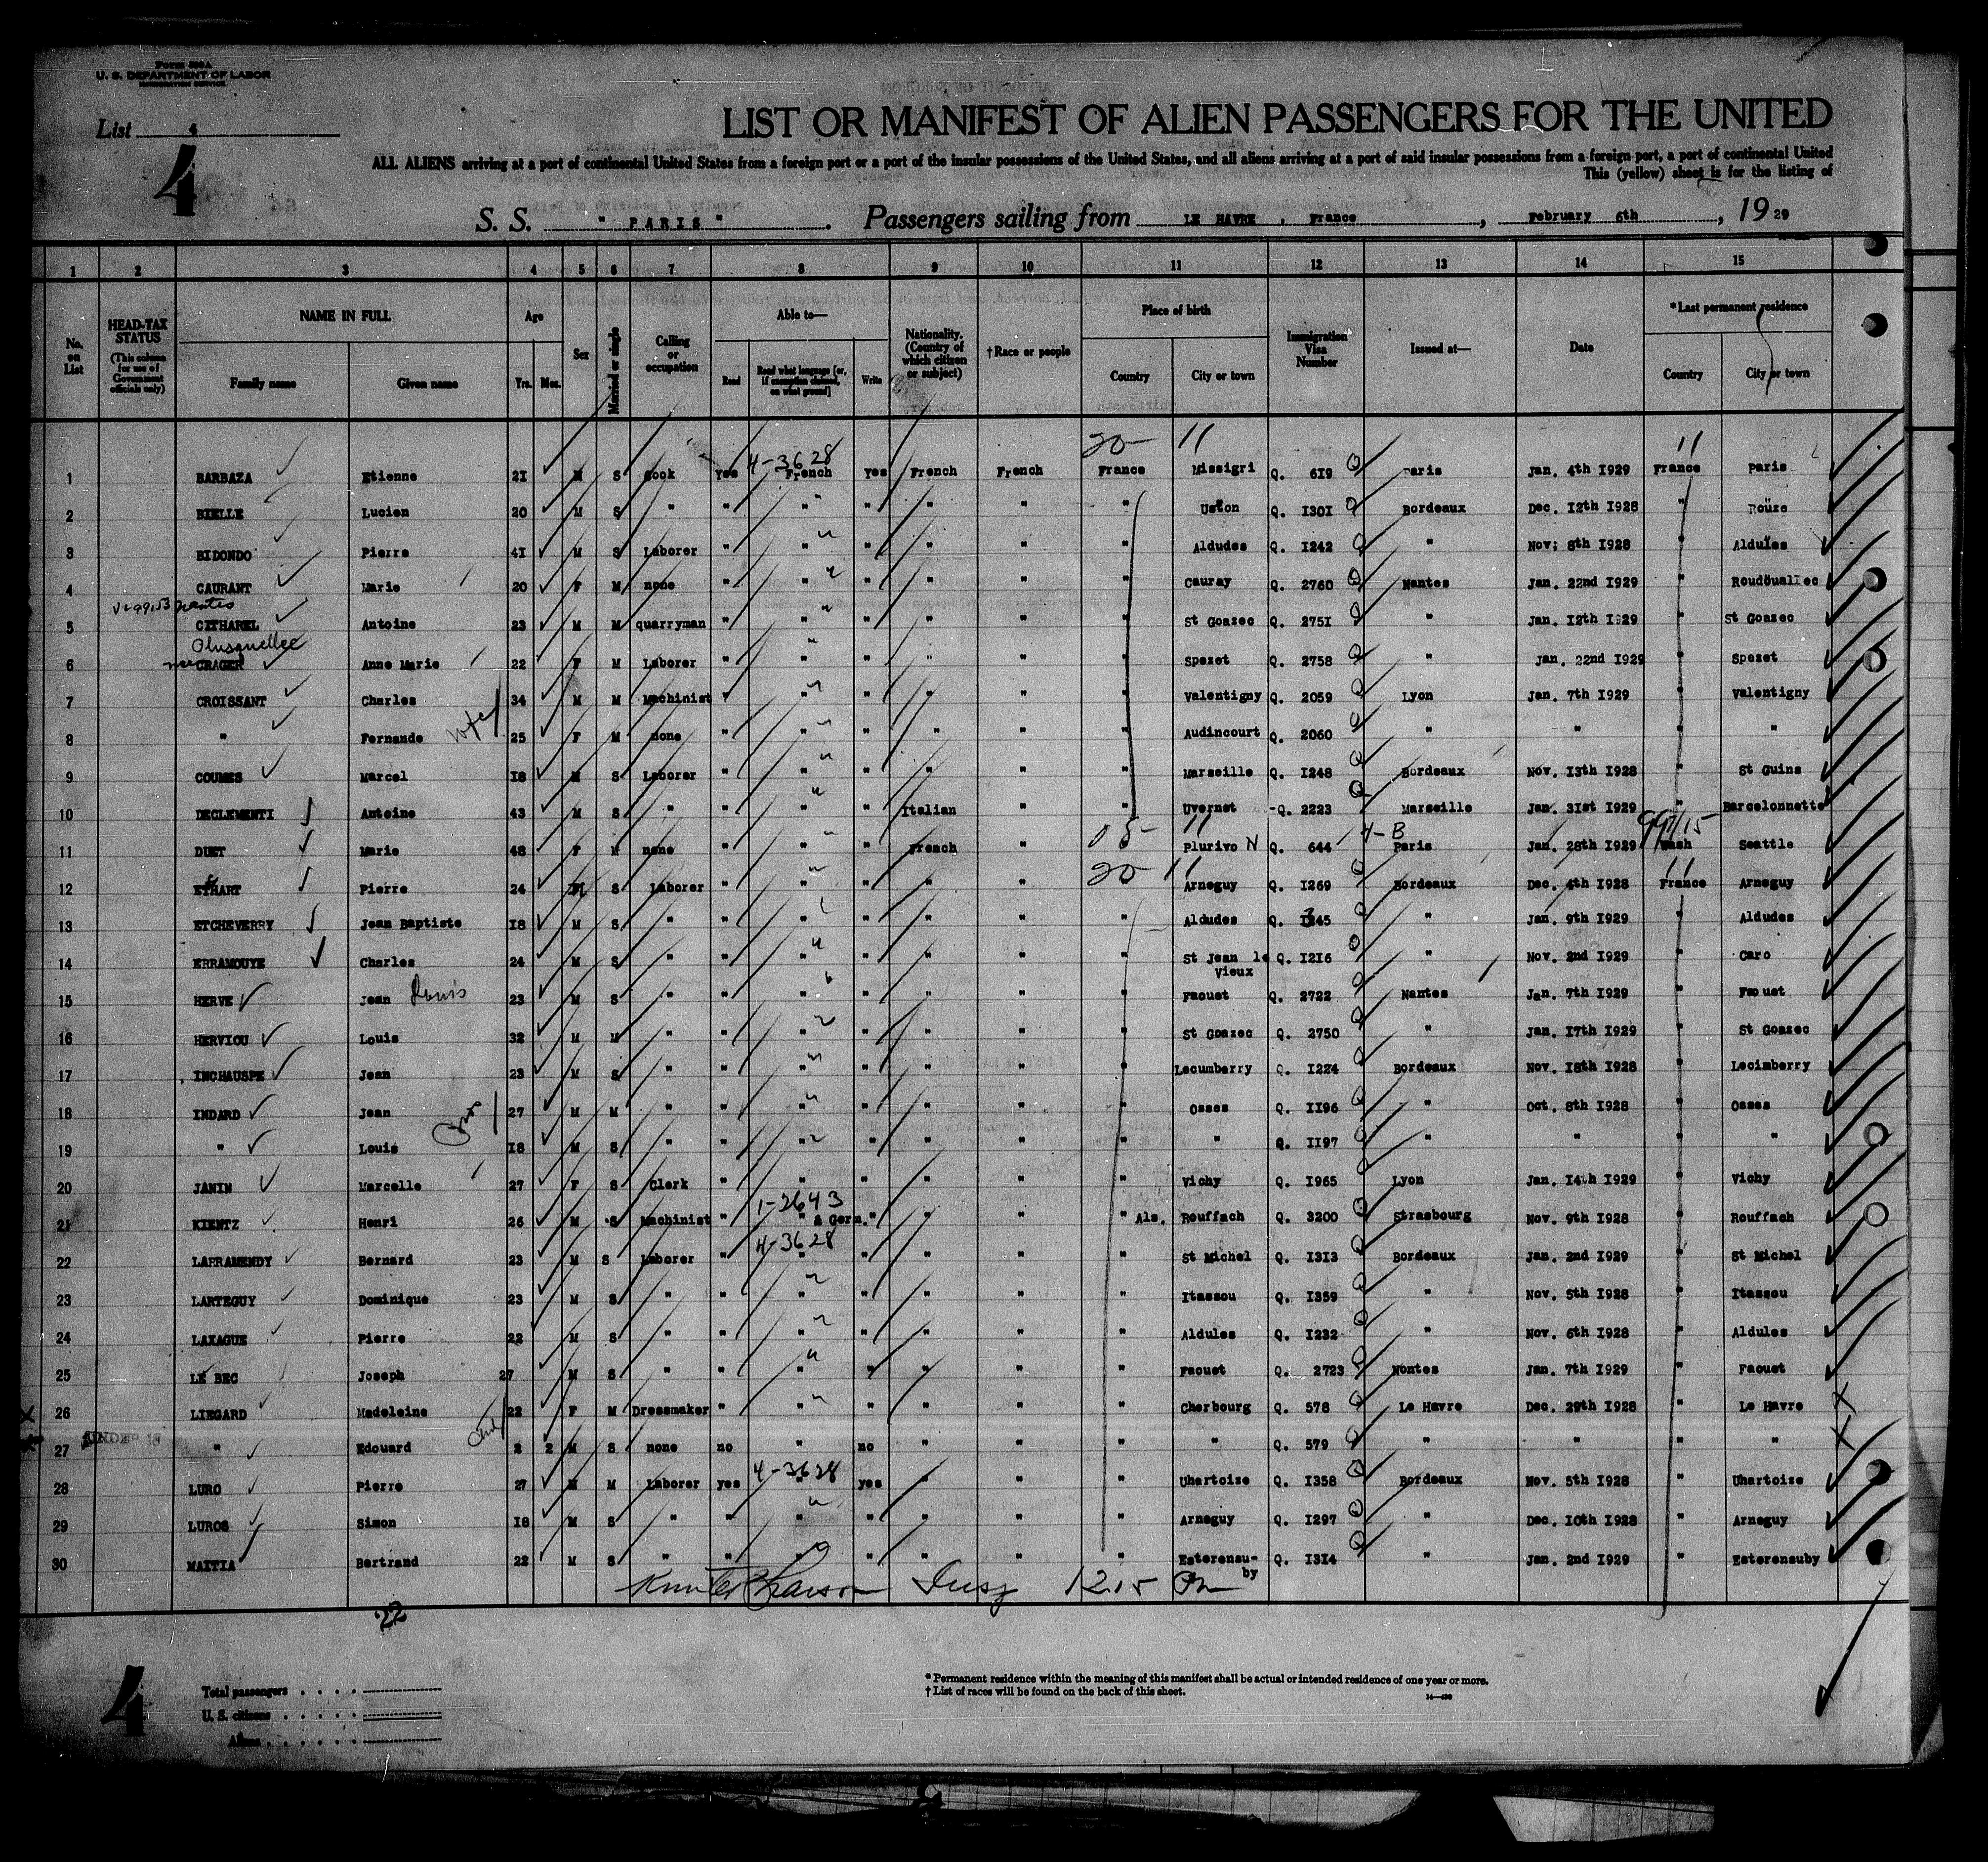 Form 500A
U. S. DEPARTMENT OF LABOR
IMMIGRATION SERVICE
List 4
4
LIST OR MANIFEST OF ALIEN PASSENGERS FOR THE UNITED
ALL ALIENS arriving at a port of continental United States from a foreign port or a port of the insular possessions of the United States, and all aliens arriving at a port of said insular possessions from a foreign port, a port of continental United
This (yellow) sheet is for the listing of
S. S. " PARIS " . Passengers sailing from LE HAVRE , France , February 6th , 19 29
1 2 3 4 5 6 7 8 9 10 11 12 13 14 15
No. on List
HEAD-TAX STATUS (This column for use of Government officials only)
NAME IN FULL
Family name Given name
Age Yrs. Mos.
Sex
Married or single
Calling or occupation
Able to—
Read Read what language [or, if exemption claimed, on what ground] Write
Nationality. (Country of which citizen or subject)
†Race or people
Place of birth
Country City or town
Immigration Visa Number
Issued at—
Date
*Last permanent residence
Country City or town
20- 11 11
4-3628
1 BARBAZA Etienne 21 M S Cook yes French yes French French France Missigri Q. 619 Paris Jan. 4th 1929 France Paris
2 BIELLE Lucien 20 M S " " " " " " " Uston Q. 1301 Bordeaux Dec. 12th 1928 " Rouze
3 BIDONDO Pierre 41 M S Laborer " " " " " " Aldudes Q. 1242 " Nov; 8th 1928 " Aldules
4 CAURANT Marie 20 F M none " " " " " " Cauray Q. 2760 Nantes Jan. 22nd 1929 " Roudouallec
5 CITHAREL Antoine 23 M M quarryman " " " " " " St Goazec Q. 2751 " Jan. 12th 1929 " St Goazec
Plusquellec
6 nee CRAGER Anne Marie 22 F M Laborer " " " " " " Spezet Q. 2758 " Jan. 22nd 1929 " Spezet
7 CROISSANT Charles 34 M M Machinist " " " " " " Valentigny Q. 2059 Lyon Jan. 7th 1929 " Valentigny
8 " Fernande wife 25 F M none " " " " " " Audincourt Q. 2060 " " " "
9 COUMES Marcel 18 M S Laborer " " " " " " Marseille Q. 1248 Bordeaux Nov. 13th 1928 " St Guins
10 DECLEMENTI Antoine 43 M S " " " " Italian " " Uvernet -Q. 2223 Marseille Jan. 31st 1929 " Barcelonnette
05- 11 4-B
11 DUET Marie 48 F M none " " " French " " Plurivo N Q. 644 Paris Jan. 28th 1929 Wash Seattle
20 11 11
12 ETHART Pierre 24 M S Laborer " " " " " Arneguy Q. 1269 Bordeaux Dec. 4th 1928 France Arneguy
13 ETCHEVERRY Jean Baptiste 18 M S " " " " " " " Aldudes Q. 1345 " Jan. 9th 1929 " Aldudes
14 ERRAMOUYE Charles 24 M S " " " " " " " St Jean le Vieux Q. 1216 " Nov. 2nd 1929 " Caro
15 HERVE Jean Louis 23 M S " " " " " " " Faouet Q. 2722 Nantes Jan. 7th 1929 " Faouet
16 HERVIOU Louis 32 M M " " " " " " " St Goazec Q. 2750 " Jan. 17th 1929 " St Goazec
17 INCHAUSPE Jean 23 M S " " " " " " " Lecumberry Q. 1224 Bordeaux Nov. 18th 1928 " Lecimberry
18 INDARD Jean 27 M M " " " " " " " Osses Q. 1196 " Oct. 8th 1928 " Osses
19 " Louis Bros 18 M S " " " " " " " " Q. 1197 " " " "
20 JANIN Marcelle 27 F S Clerk " " " " " " Vichy Q. 1965 Lyon Jan. 14th 1929 " Vichy
1-2643
21 KIENTZ Henri 26 M S Machinist " " & Germ. " " " " Als. Rouffach Q. 3200 Strasbourg Nov. 9th 1928 " Rouffach
4-3628
22 LARRAMENDY Bernard 23 M S Laborer " " " " " " St Michel Q. 1313 Bordeaux Jan. 2nd 1929 " St Michel
23 LARTEGUY Dominique 23 M S " " " " " " " Itassou Q. 1359 " Nov. 5th 1928 " Itassou
24 LAXAGUE Pierre 22 M S " " " " " " " Aldules Q. 1232 " Nov. 6th 1928 " Aldules
25 LE BEC Joseph 27 M S " " " " " " " Faouet Q. 2723 Nontes Jan. 7th 1929 " Faouet
26 LIEGARD Madeleine 22 F M Dressmaker " " " " " " Cherbourg Q. 578 Le Havre Dec. 29th 1928 " Le Havre
UNDER 16
27 " Edouard 2 2 M S none no " no " " " " Q. 579 " " " "
4-3628
28 LURO Pierre 27 M M Laborer yes " yes " " " Uhartoize Q. 1358 Bordeaux Nov. 5th 1928 " Uhartoize
29 LUROS Simon 18 M S " " " " " " " Arneguy Q. 1297 " Dec. 10th 1928 " Arneguy
30 MAITIA Bertrand 22 M S " " " " " " " Esterensu-by Q. 1314 " Jan. 2nd 1929 " Esterensuby
Insp 1215 Pm
22
4
Total passengers
U. S. citizens
Aliens
* Permanent residence within the meaning of this manifest shall be actual or intended residence of one year or more.
† List of races will be found on the back of this sheet.